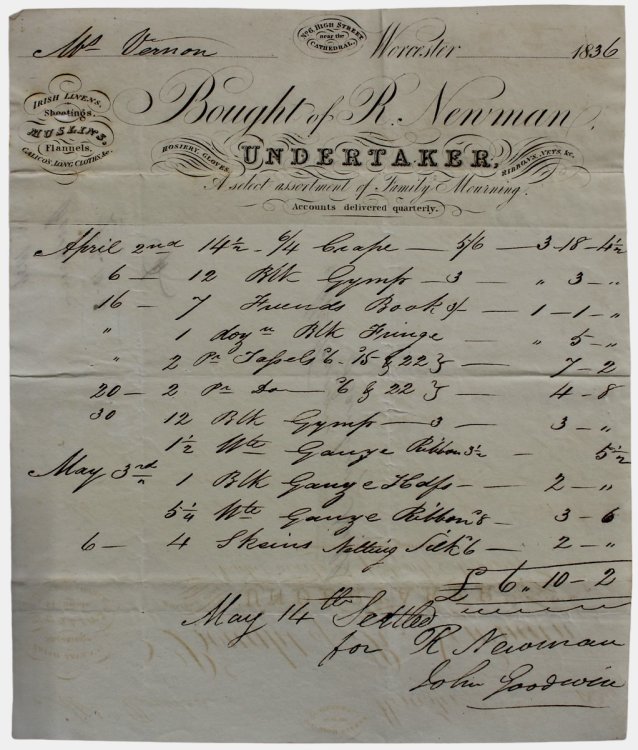 No. 6, HIGH STREET
near the
CATHEDRAL,
Mrs Vernon Worcester 1836
IRISH LINENS,
Sheetings,
MUSLINS,
Flannels,
CALICOS, LONG CLOTHS, &c.
Bought of R. Newman,
HOSIERY, GLOVES,
UNDERTAKER,
RIBBONS, NETS, &c.
A select assortment of Family Mourning.
Accounts delivered quarterly.
April 2nd 14½ - 6/4 Crape — 5/6 — 3 - 18 - 4½
6 — 12 Blk Gymp — 3 — " 3 — "
16 — 7 Book 3/ — 1 - 1 - "
" 1 dozn Blk Fringe — " 5 - "
" 2 Pr Tassels & 22 } — 7 - 2
20 — 2 Pr Do — 6 & 22 } — 4 - 8
30 12 Blk Gymp — 3 — 3 - "
1½ Wte Gauze Ribbon 3½ — 5½
May 3rd 1 Blk Gauze Hdf — 2 - "
5¼ Wte Gauze Ribbon 8 — 3 - 6
6 — 4 Skeins Netting Silk 6 — 2 - "
£ 6 " 10 - 2
May 14th Settled
for R Newman
John Goodwin